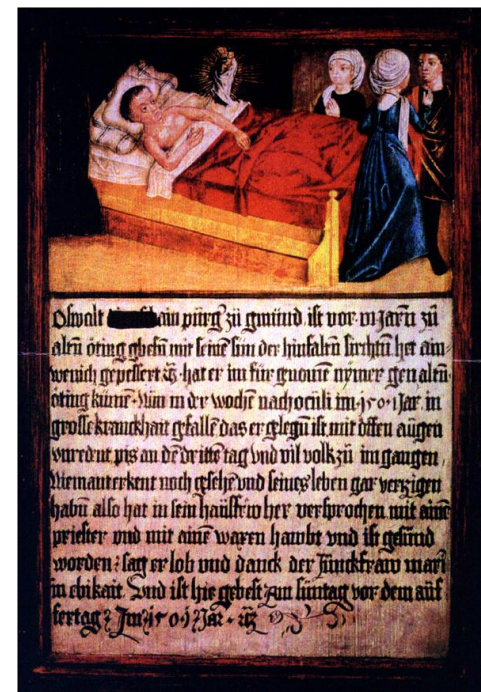 Oswalt ain pürg zü gmünd ist vor iii Jarñ zü
altñ öting gbesñ mit seinē sün der hinfaltñ sirchtñ het ain
wenich gepessert hat er im für gnomē nȳmer gen altñ
öting kümē. Nün in der wochñ nach oculi im 1501 Jar in
grosse kranckhait gfallē das er gelegñ ist mit offen aügen
vnredent pis an dē dritte tag vnd vil volk zü im gangen
Niemant erkent noch gesehē vnd seines leben gar verzigen
habñ also hat in sein haüsfrw her versprochen mit ainē
priester vnd mit ainē waxen hawbt vnd ist gesünd
worden: sag er lob vnd danck der Jünckfraw mari
in ebikait. Vnd ist hie gebest Am süntag vor dem aüf
fertag Im 1501 Jar.